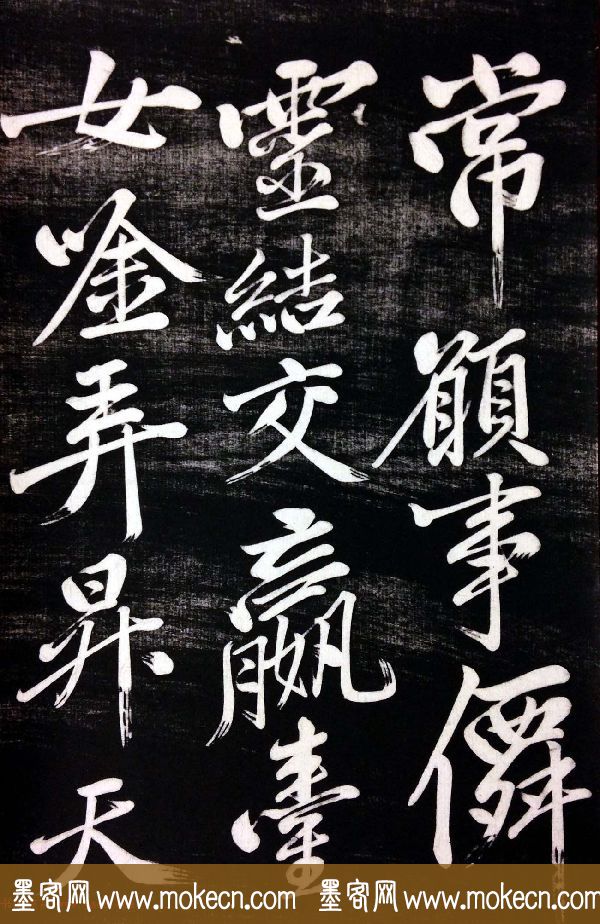 常願事僊
靈結交嬴臺
女唫弄昇天
墨客网 www.mokecn.com 墨客网 www.mokecn.com